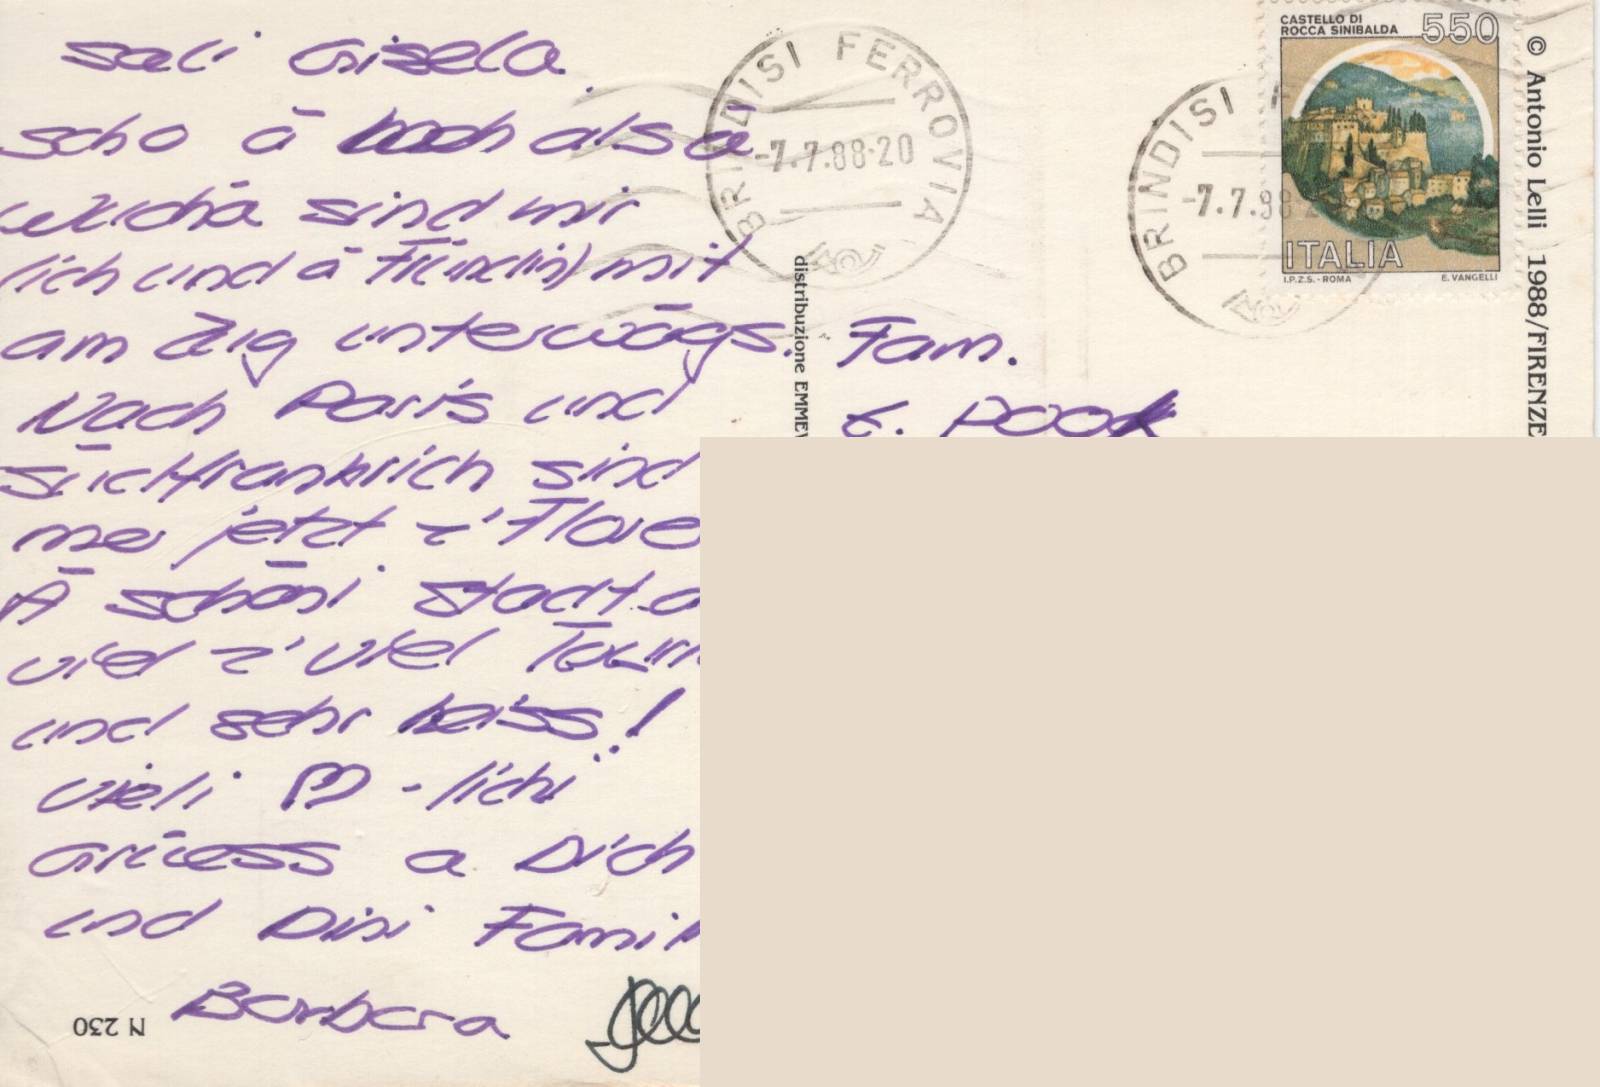 Sali Gisela.
scho ā noch alsa
wuchā sind mir
(ich und ā Fründin) mit
am Zug unterwägs.
Nach Paris und
Südfrankrich sind
mer jetzt z' Flore
Ā schöni Stadt a
viel z' viel Touri
und sehr heiss!
Vieli -lichi
Grüess a Dich
und Dini Famil
Barbara
N 230
distribuzione EMMEV
BRINDISI FERROVIA
-7.7.88-20
Fam.
E. Pook
BRINDISI F
-7.7.88-2
CASTELLO DI
ROCCA SINIBALDA
550
ITALIA
I.P.Z.S. - ROMA
E. VANGELLI
© Antonio Lelli 1988/FIRENZE